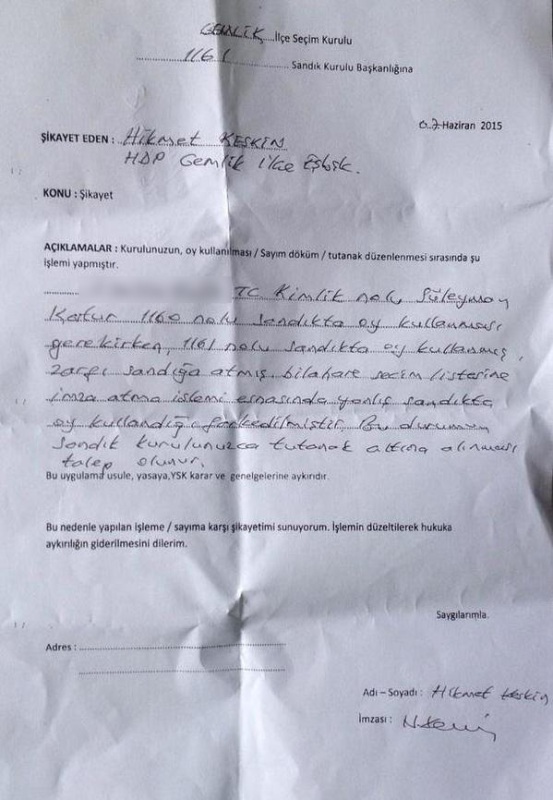 GEMLİK İlçe Seçim Kurulu
1161 Sandık Kurulu Başkanlığına
07 Haziran 2015
ŞİKAYET EDEN : Hikmet KESKİN
HDP Gemlik ilçe Eşbşk.
KONU : Şikayet
AÇIKLAMALAR : Kurulunuzun, oy kullanılması / Sayım döküm / tutanak düzenlenmesi sırasında şu
işlemi yapmıştır.
TC Kimlik nolu, Süleyman
1160 nolu sandıkta oy kullanması
gerekirken, 1161 nolu sandıkta oy kullanmış,
zarfı sandığa atmış, bilahare seçim listerine
imza atma işlemi esnasında yanlış sandıkta
oy kullandığı farkedilmiştir, Bu durumun
sandık kurulunuzca tutanak altına alınması
talep olunur.
Bu uygulama usule, yasaya,YSK karar ve genelgelerine aykırıdır.
Bu nedenle yapılan işleme / sayıma karşı şikayetimi sunuyorum. İşlemin düzeltilerek hukuka
aykırılığın giderilmesini dilerim.
Saygılarımla.
Adres :
Adı – Soyadı : Hikmet Keskin
İmzası :